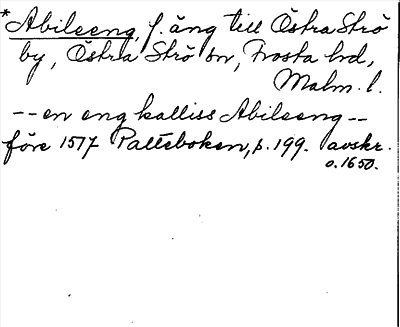 *Abileeng, f. äng till Östra Strö
by, Östra Strö sn, Frosta hd,
Malm. l.
-- en eng kalliss Abileeng --
före 1517 Palteboken, p. 199. avskr.
o. 1650.